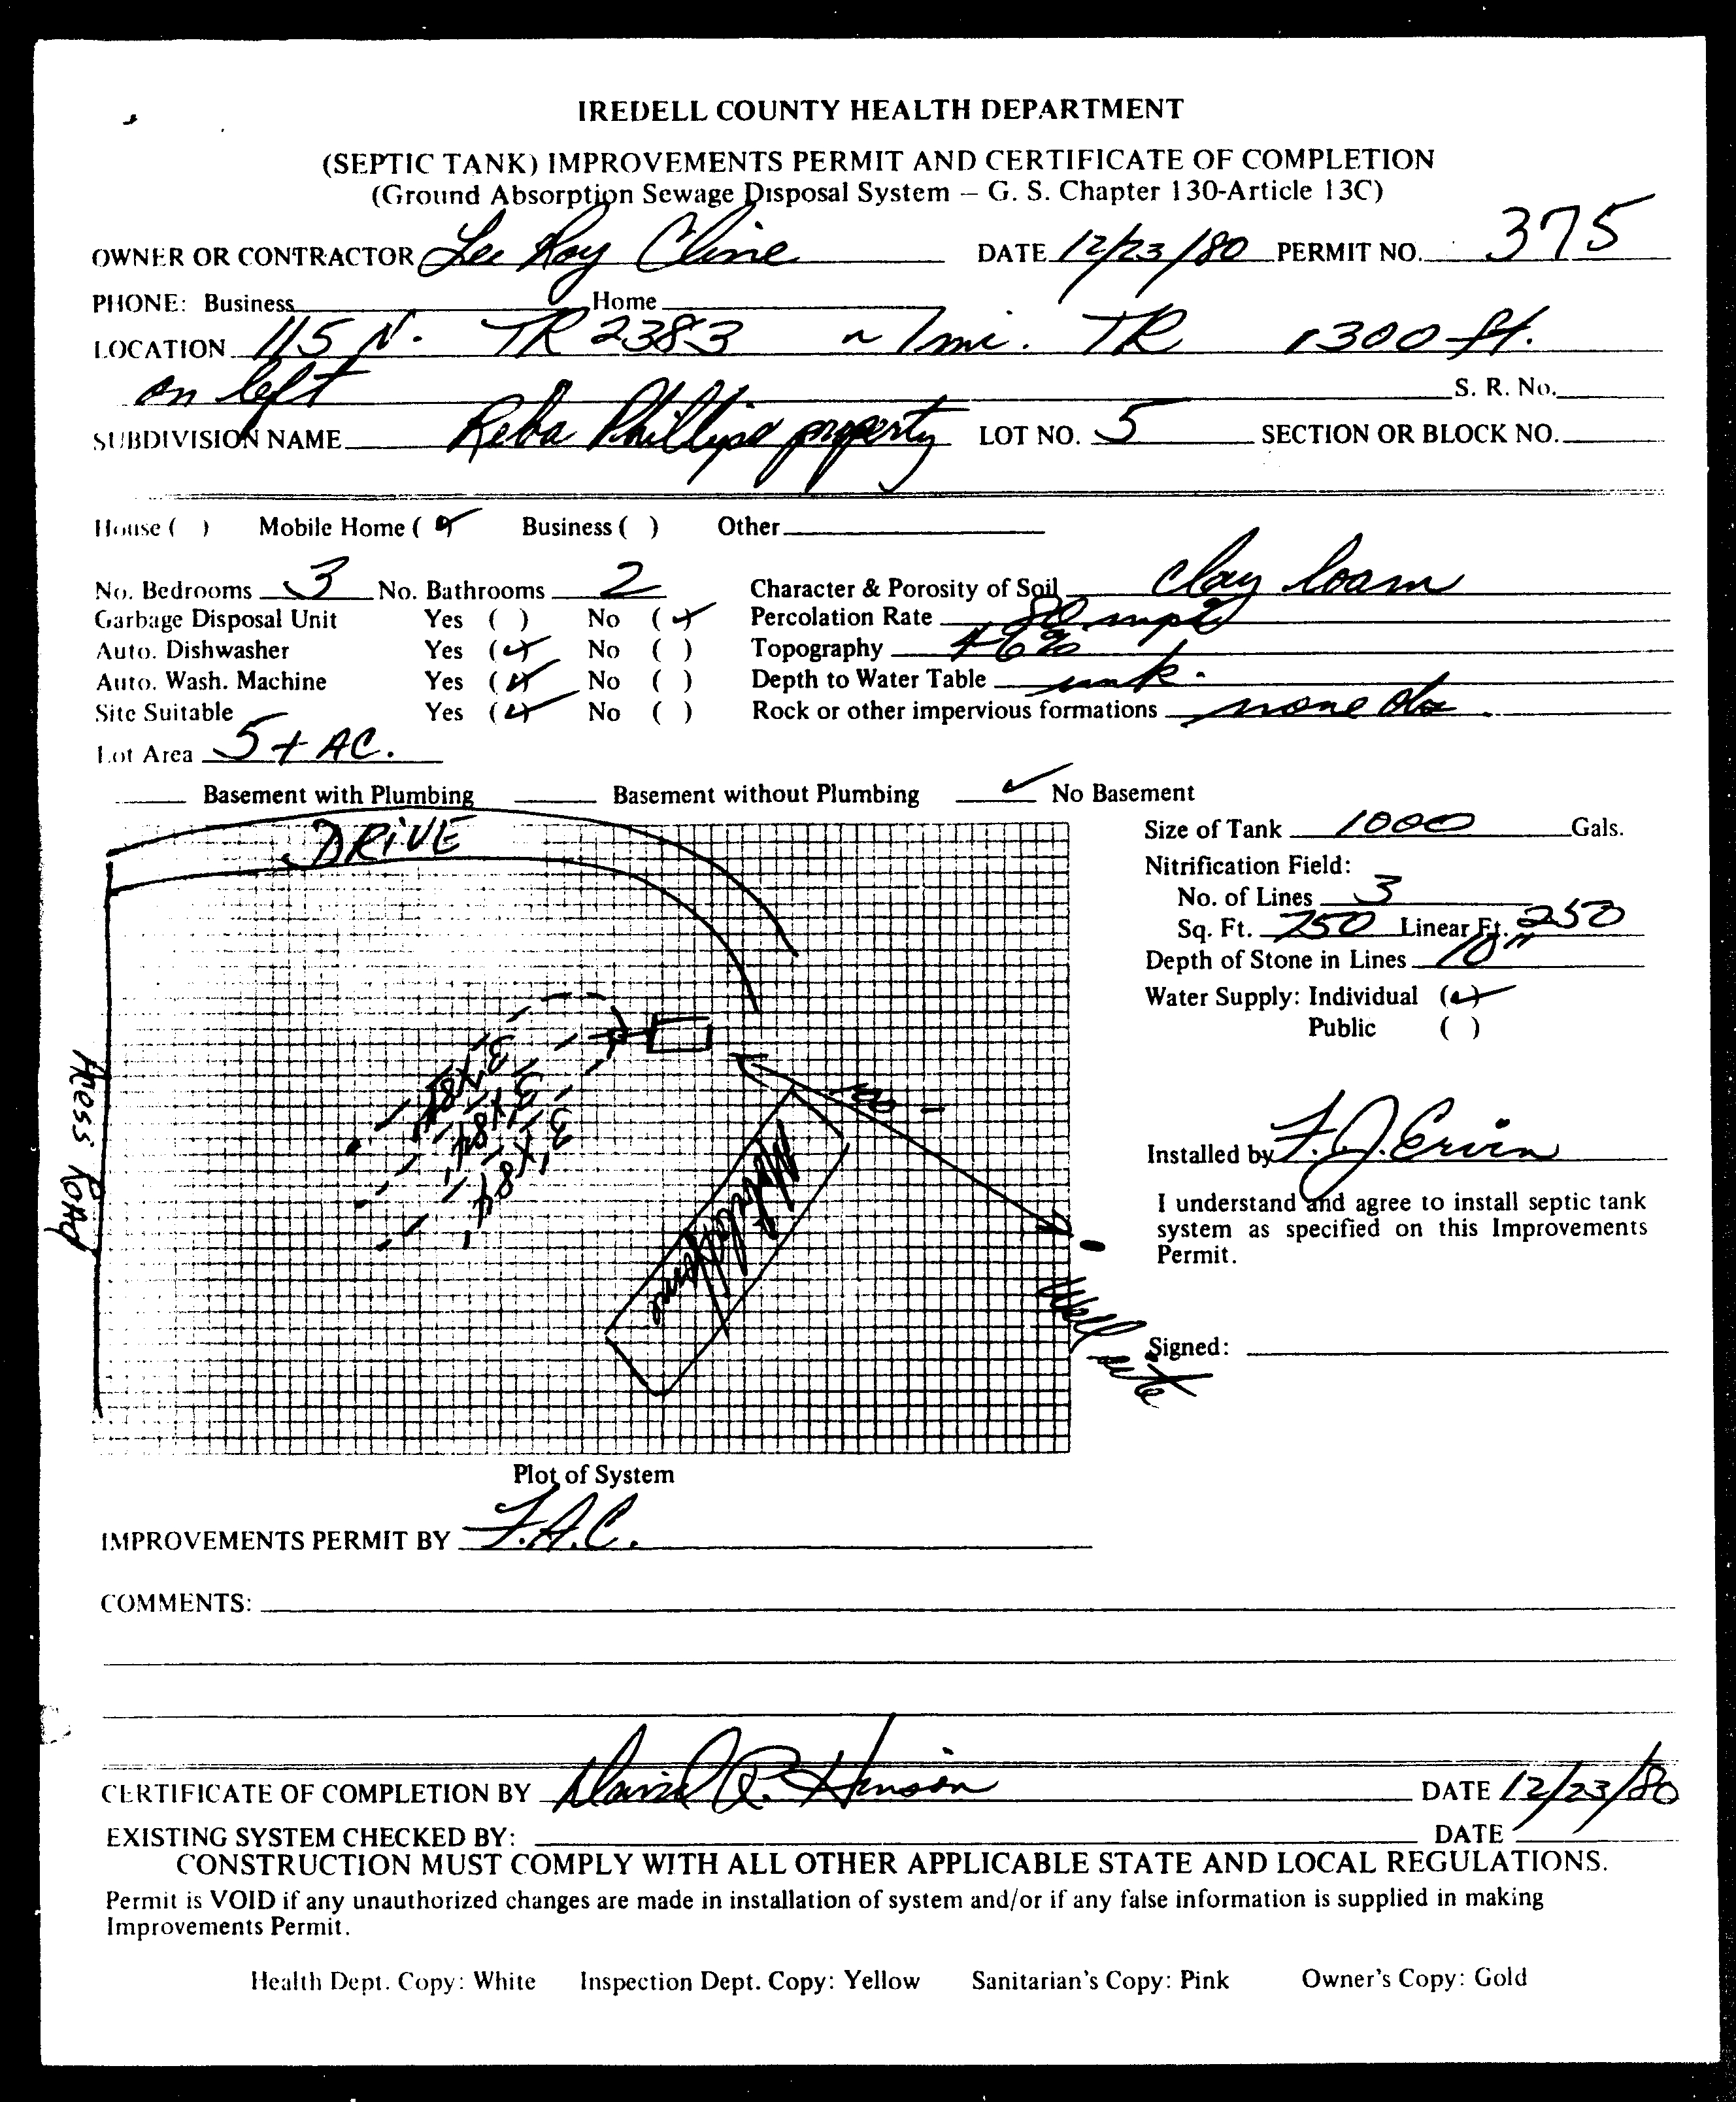 IREDELL COUNTY HEALTH DEPARTMENT
(SEPTIC TANK) IMPROVEMENTS PERMIT AND CERTIFICATE OF COMPLETION
(Ground Absorption Sewage Disposal System — G. S. Chapter 130-Article 13C)
OWNER OR CONTRACTOR Lee Roy Cline DATE 12/23/80 PERMIT NO. 375
PHONE: Business Home
LOCATION 115 N. TR 2383 ~ 1 mi. TR 1300 ft.
on left S. R. No.
SUBDIVISION NAME Reba Phillips property LOT NO. 5 SECTION OR BLOCK NO.
House ( ) Mobile Home (✓) Business ( ) Other
No. Bedrooms 3 No. Bathrooms 2 Character & Porosity of Soil clay loam
Garbage Disposal Unit Yes ( ) No (✓) Percolation Rate
Auto. Dishwasher Yes (✓) No ( ) Topography
Auto. Wash. Machine Yes (✓) No ( ) Depth to Water Table unk.
Site Suitable Yes (✓) No ( ) Rock or other impervious formations none
Lot Area 5+ AC.
Basement with Plumbing Basement without Plumbing ✓ No Basement
DRIVE
Size of Tank 1000 Gals.
Nitrification Field:
No. of Lines 3
Sq. Ft. 750 Linear Ft. 250
Depth of Stone in Lines 10"
Water Supply: Individual (✓)
Public ( )
3'x84'
3'x84'
3'x84'
100
Road
Installed by F. J. Ervin
I understand and agree to install septic tank
system as specified on this Improvements
Permit.
Well site
Signed:
Plot of System
IMPROVEMENTS PERMIT BY F.A.C.
COMMENTS:
CERTIFICATE OF COMPLETION BY David R. Henson DATE 12/23/80
EXISTING SYSTEM CHECKED BY: DATE
CONSTRUCTION MUST COMPLY WITH ALL OTHER APPLICABLE STATE AND LOCAL REGULATIONS.
Permit is VOID if any unauthorized changes are made in installation of system and/or if any false information is supplied in making
Improvements Permit.
Health Dept. Copy: White Inspection Dept. Copy: Yellow Sanitarian's Copy: Pink Owner's Copy: Gold